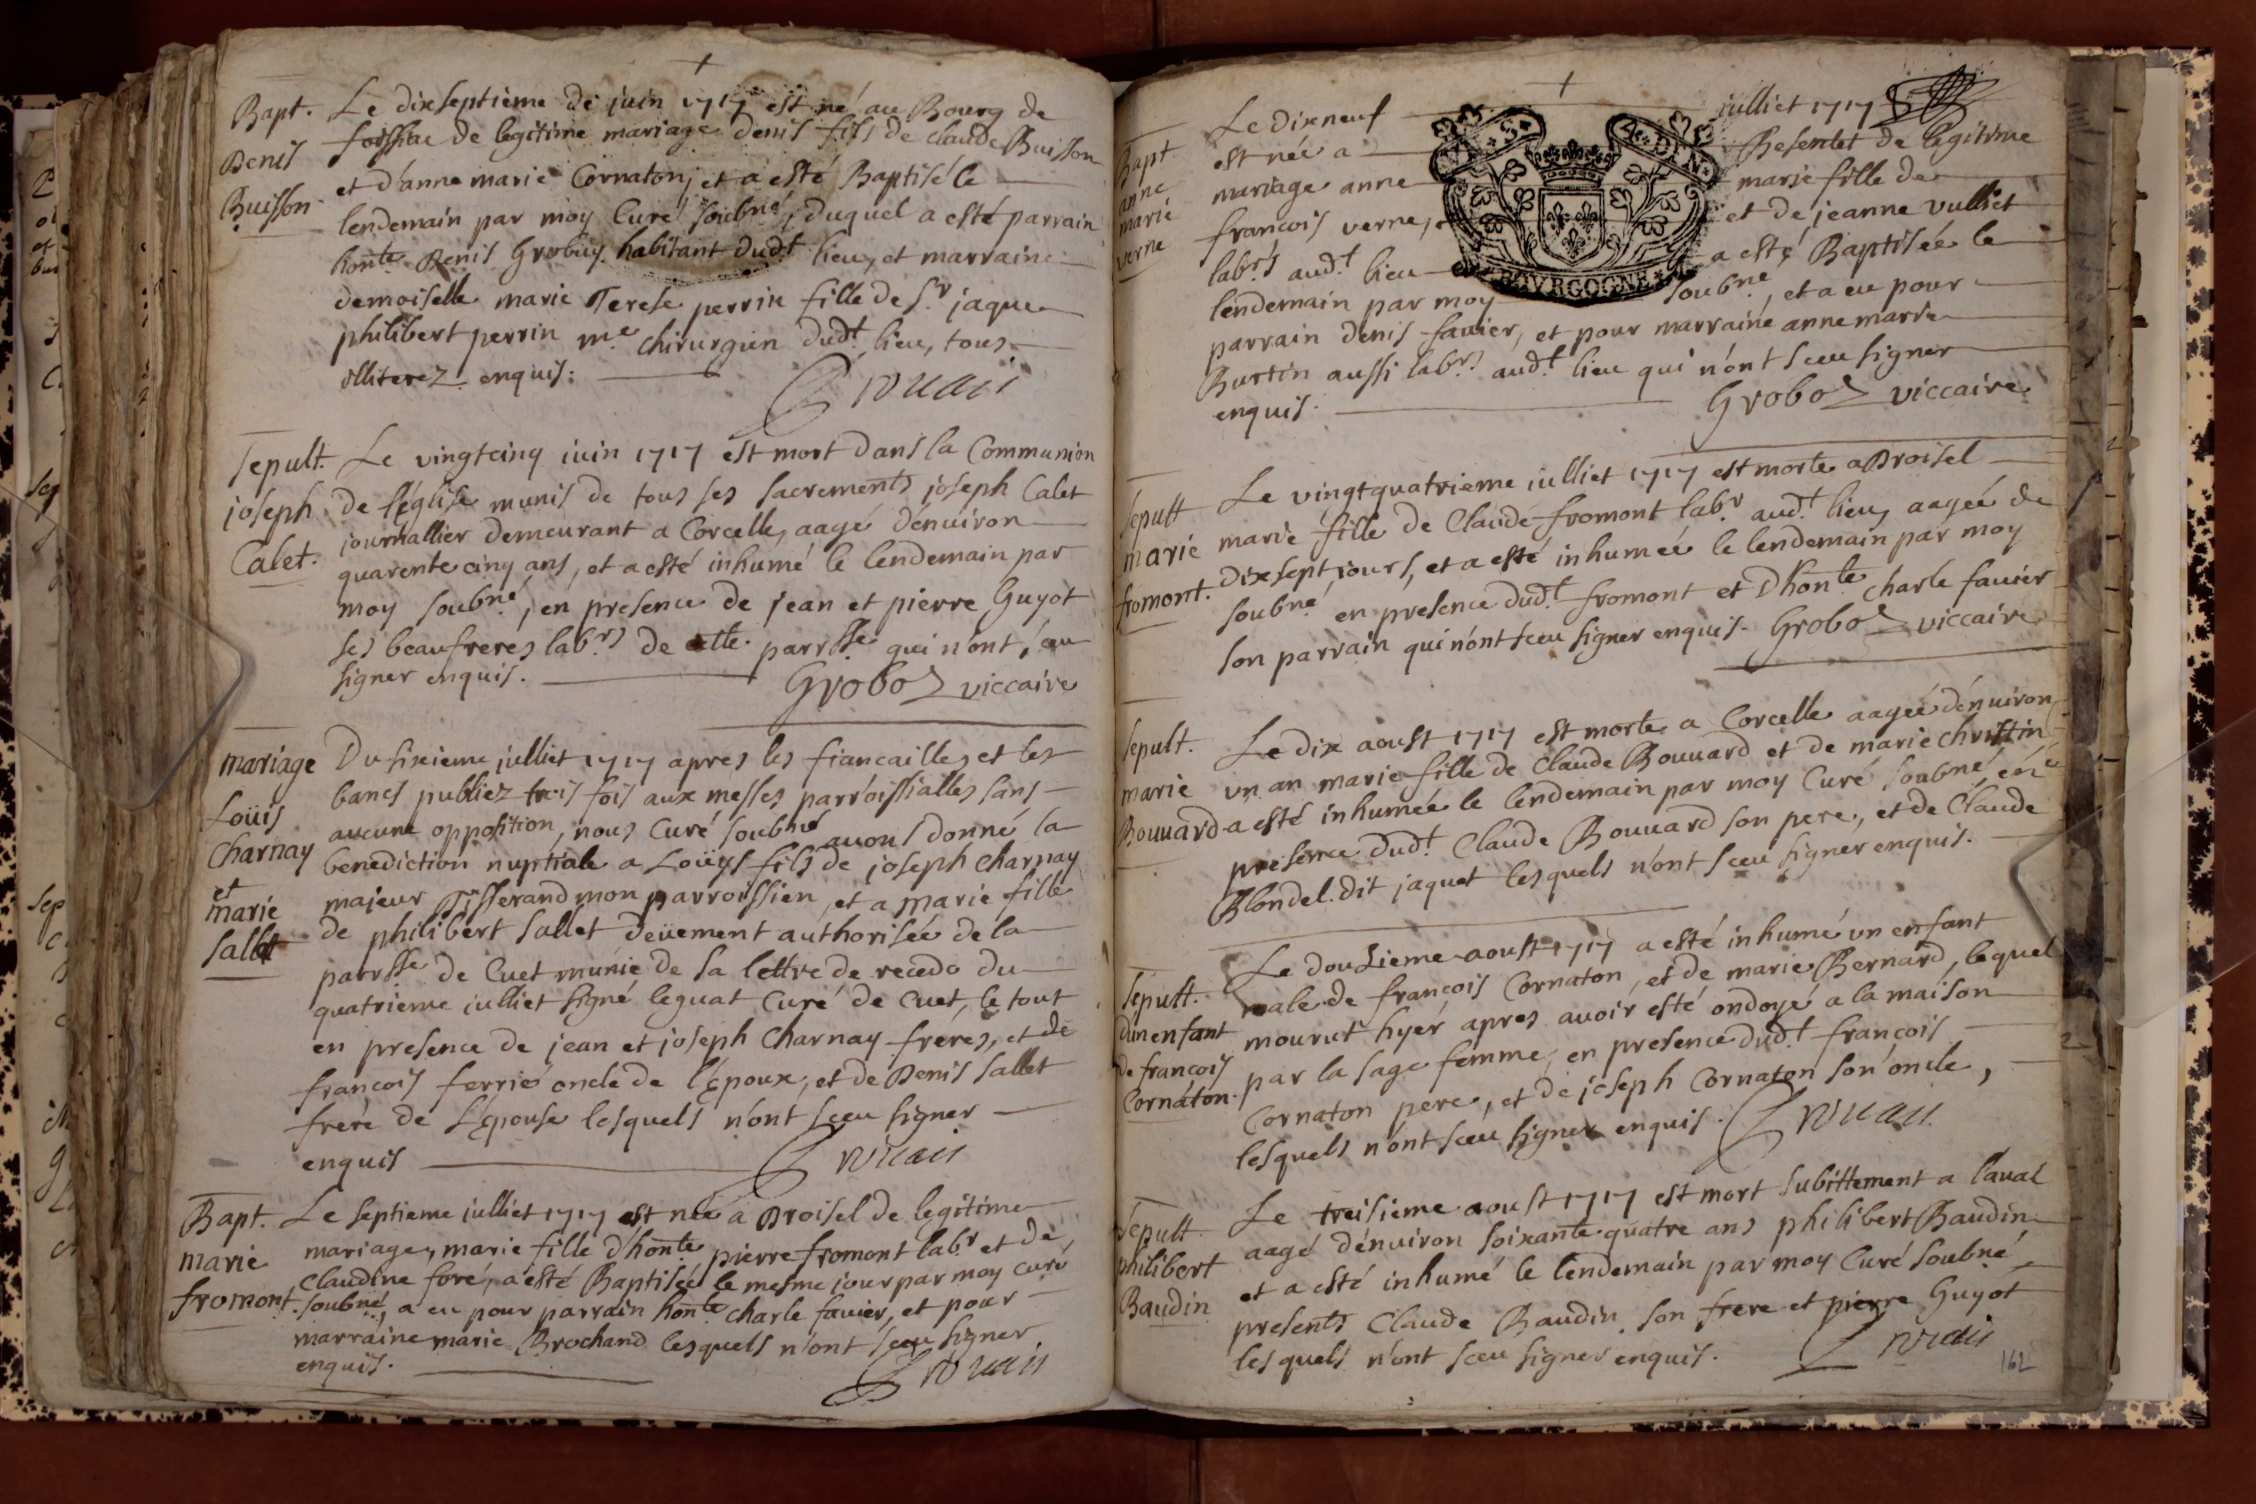 Bapt.
Denis
Buisson
Le dixseptieme de juin 1717 est né au Bourg de
foissiac de legitime mariage denis fils de claude Buisson
et d'anne marie Cornaton, et a esté Baptisé le
lendemain par moy Curé soubné, duquel a esté parrain
honte Denis Grobuy habitant dudt lieu, et marraine
demoiselle marie Terese perrin fille de Sr jaque
philibert perrin me chirurgien dudt lieu, tous
illiterez enquis:
Sepult.
joseph
Calet.
Le vingtcinq iuin 1717 est mort dans la Communion
de l'église munis de tous ses sacrements joseph Calet
journallier demeurant a Corcelle, aagé dénuiron
quarente cinq ans, et a esté inhumé le lendemain par
moy soubné, en presence de jean et pierre Guyot
ses beaufreres labrs de cette parrsse qui n'ont sceu
signer enquis.
Groboz viccaire
mariage
Loüis
Charnay
et
marie
Sallet
Du sixieme julliet 1717 apres les fiancailles et les
bancs publiez trois fois aux messes parroissialles sans
aucune opposition, nous Curé soubné auons donné la
benediction nuptiale a Loüys fils de joseph Charnay
majeur Tisserand mon parroissien, et a marie fille
de philibert Sallet deüement authorisée de la
parrsse de Cuet munie de sa lettre de recedo du
quatrieme iulliet signé leguat Curé de Cuet, le tout
en presence de jean et joseph Charnay freres, et de
francois ferrié oncle de l'Epoux, et de Denis Sallet
frere de l'Epouse lesquels n'ont sceu signer
enquis
Bapt.
marie
fromont.
Le septieme iulliet 1717 est née a Broisel de legitime
mariage, marie fille d'honte pierre fromont labr et de
Claudine foré, a esté Baptisée le mesme jour par moy curé
soubné, a eu pour parrain honte charle fauier, et pour
marraine marie Brochand lesquels n'ont sceu signer
enquis.
Bapt
anne
marie
verne
Le dixneuf julliet 1717
est née a Besentet de legitime
mariage anne marie fille de
francois verne, et de jeanne vulliet
labrs audt lieu a esté Baptisée le
lendemain par moy soubné, et a eu pour
parrain denis fauier, et pour marraine anne marie
Burtin aussi labrs audt lieu qui n'ont sceu signer
enquis.
Groboz viccaire
BOVRGOGNE
Sepult
marie
fromont.
Le vingtquatrieme iulliet 1717 est morte a Broisel
marie fille de Claude fromont labr audt lieu, aagée de
dixsept jours, et a esté inhumée le lendemain par moy
soubné en presence dudt fromont et d'honte charle fauier
son parrain qui n'ont sceu signer enquis. Groboz viccaire
Sepult.
marie
Bouuard
Le dix aoust 1717 est morte a Corcelle aagée dénuiron
un an marie fille de Claude Bouuard et de marie christin
a esté inhumée le lendemain par moy Curé soubné, en
presence dudt Claude Bouuard son pere, et de Claude
Blondel dit jaquet lesquels n'ont sceu signer enquis.
Sepult.
dun enfant
de francois
Cornaton.
Le douzieme aoust 1717 a esté inhumé un enfant
male de francois Cornaton, et de marie Bernard, lequel
mourut hyér apres auoir esté ondoyé a la maison
par la sage femme, en presence dudt francois
Cornaton pere, et de joseph Cornaton son oncle,
lesquels n'ont sceu signer enquis.
Sepult
philibert
Baudin
Le treisieme aoust 1717 est mort subittement a laual
aagé dénuiron soixante quatre ans philibert Baudin
et a esté inhumé le lendemain par moy Curé soubné,
presents Claude Baudin son frere et pierre Guyot
lesquels n'ont sceu signer enquis.
162